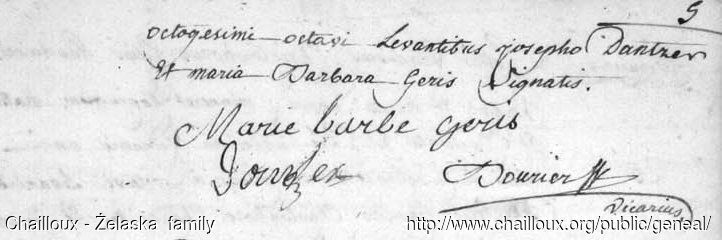 5
octogesimi octavi Levantibus josepho Dantzer
Et maria Barbara Geris Signatis.
Marie barbe geris
Dourier
Vicarius
Chailloux - Żelaska family
http://www.chailloux.org/public/geneal/